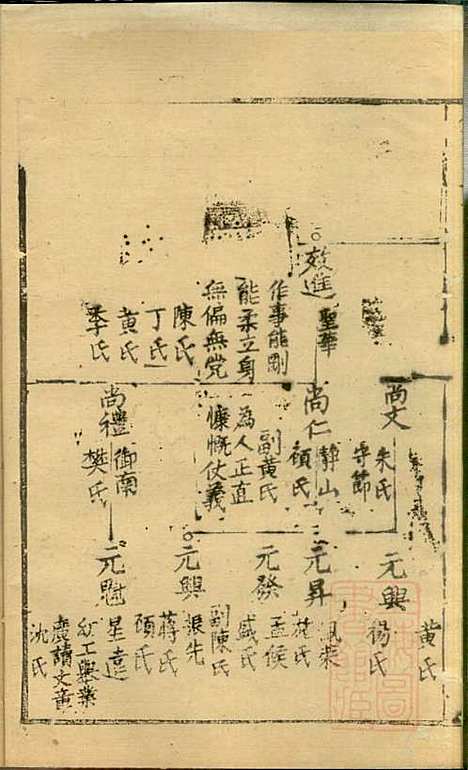 效進
聖華
作事能剛
能柔立身
無偏無党
陳氏
丁氏
黄氏
季氏
尚文
朱氏
守節
尚仁
静山
顧氏
副黄氏
為人正直
慷慨仗義
尚禮
御南
樊氏
黄氏
元興
楊氏
元昇
沈氏
元發
孟侯
戚氏
副陳氏
元興
振先
蒋氏
顧氏
元慰
星遠
幼工舉業
廣讀文章
沈氏